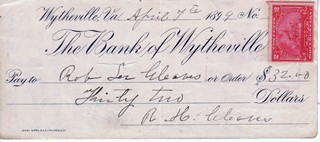 Wytheville, Va April 7th 1899 No.
The Bank of Wytheville
Pay to Rob or Order $32.00
Thirty two Dollars
R. H.